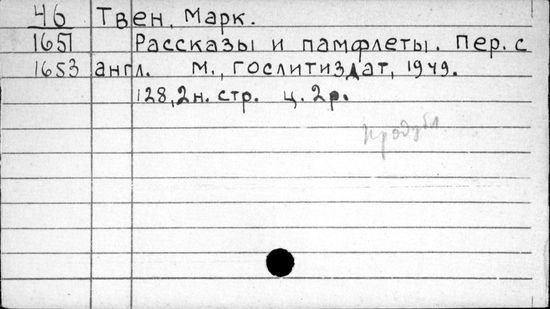 46 Твен, Марк.
1651 Рассказы и памфлеты. Пер. с
1653 англ. М., Гослитиздат, 1949.
128, 2н. стр. ц. 2р.
продубл